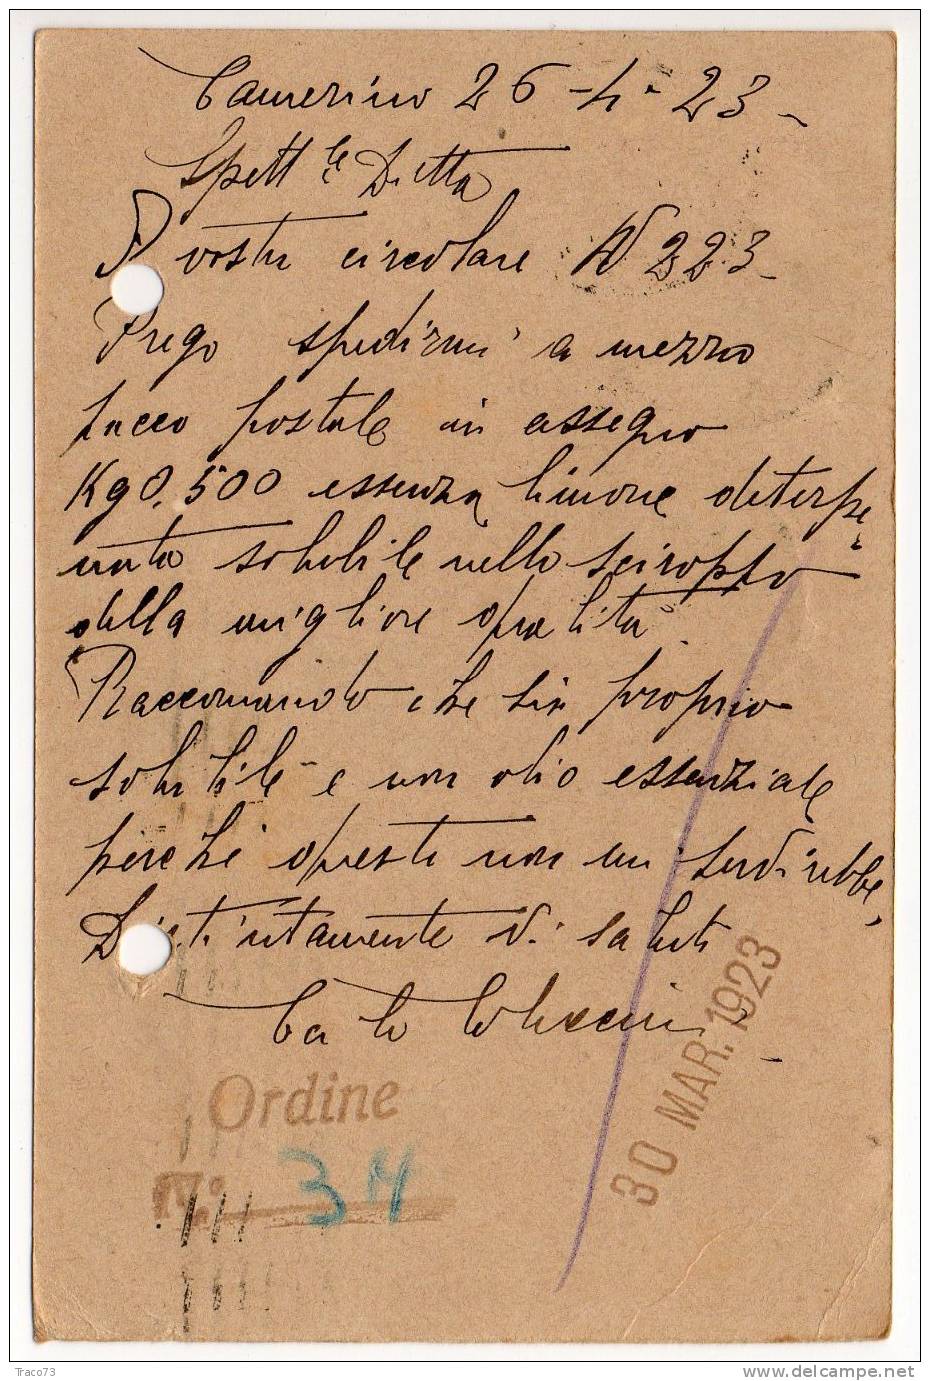 Camerino 26-4-23
Spett.le Ditta
vostra circolare N 223
Prego spedirmi a mezzo
pacco postale in assegno
Kg 0,500 essenza limone deterpe
nata solubile nello sciroppo
della migliore qualità
Raccomando che sia proprio
solubile e non olio essenziale
perché questi non mi servirebbe,
Distintamente Vi saluto
Carlo
Ordine
No. 34
30 MAR. 1923
Traco73
www.delcampe.net